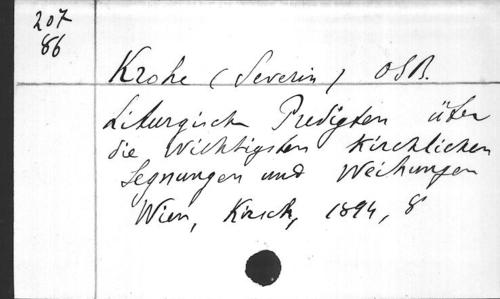 207
86
Krohe (Severin) OSB.
Liturgische Predigten über
die wichtigsten kirchlichen
Segnungen und Weihungen
Wien, Kirsch, 1894, 8°